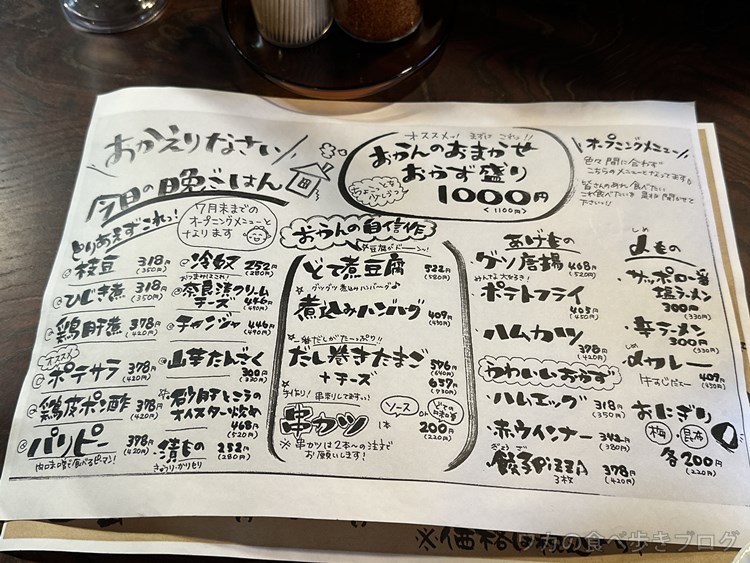 おかえりなさい
今日の晩ごはん
7月末までの
オープニングメニューと
なります
オススメッ! まずは これ!!
おかんのおまかせ
おかず盛り
1000円
<1100円>
オープニングメニュー
色々間に合わず
こちらのメニューとなってます
皆さんのあれ食べたい
これ食べたいを 是非 聞かせて
下さい!!
とりあえずこれっ!
枝豆 318円
(350円)
ひじき煮 318円
(350円)
鶏肝煮 378円
(420円)
オススメ
ポテサラ 378円
(420円)
鶏皮ポン酢 378円
(420円)
パリピー 378円
(420円)
肉味噌で食べるピーマン!
冷奴 252円
(280円)
おつまみはこれ!
奈良漬クリーム
チーズ 446円
(490円)
チャンジャ 446円
(490円)
山芋たんざく
300円
(330円)
砂肝とニラの
オイスター炒め
468円
(520円)
漬もの 252円
(280円)
きゅうり・かりもり
おかんの自信作
豆腐がドーーン!
どて煮豆腐 522円
(580円)
グツグツ煮込みハンバーグ♪
煮込みハンバグ 409円
(450円)
だしがたーっぷり!!
だし巻きたまご 576円
(640円)
+チーズ 657円
(730円)
手作り! 串刺してます!
串カツ 1本 200円
(220円)
ソース or どての味噌
※串カツは2本〜の注文で
お願いします!
あげもの
ゲソ唐揚 468円
(520円)
みんな大好き!
ポテトフライ
405円
(450円)
ハムカツ
378円
(420円)
かわいいおかず
ハムエッグ 318円
(350円)
赤ウインナー 342円
(380円)
ぎょうざ
餃子PiZZA 378円
3枚 (420円)
しめ
〆もの
サッポロ一番
塩ラーメン
300円
(330円)
辛ラーメン
300円
(330円)
しめ
〆カレー
409円
(450円)
牛すじだよ〜
おにぎり
梅 昆布
各200円
(220円)
※価格は
の食べ歩きブログ